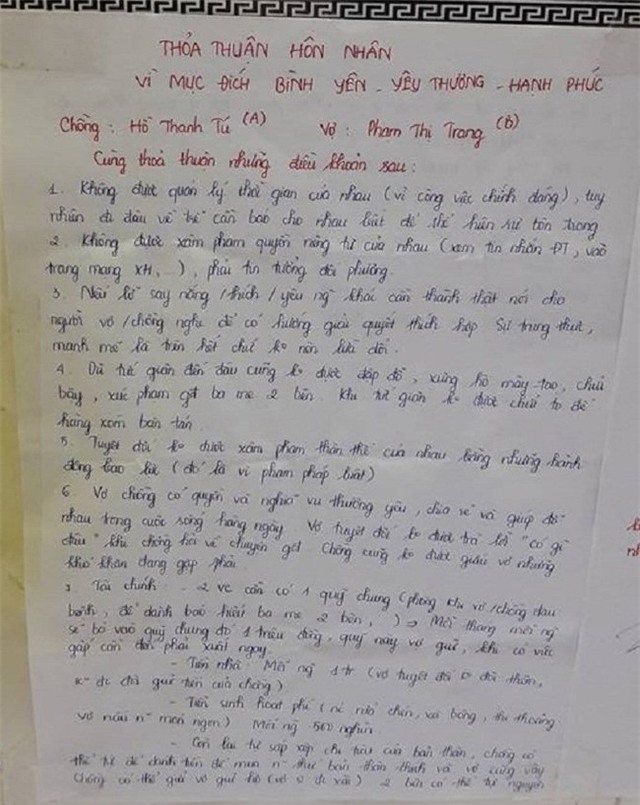 THỎA THUẬN HÔN NHÂN
VÌ MỤC ĐÍCH BÌNH YÊN - YÊU THƯƠNG - HẠNH PHÚC
Chồng : Hồ Thanh Tú (A) Vợ : Phạm Thị Trang (B)
Cùng thoả thuận những điều khoản sau :
1. Không được quản lý thời gian của nhau (vì công việc chính đáng), tuy
nhiên đi đâu về trễ cần báo cho nhau biết để thể hiện sự tôn trọng
2. Không được xâm phạm quyền riêng tư của nhau (xem tin nhắn ĐT, vào
trang mạng XH, ...), phải tin tưởng đối phương.
3. Nếu lỡ say nắng / thích / yêu ng khác cần thành thật nói cho
người vợ / chồng nghe để có hướng giải quyết thích hợp. Sự trung thực,
mạnh mẽ là trên hết chứ ko nên lừa dối.
4. Dù tức giận đến đâu cũng ko được đập đồ, xưng hô mày - tao, chửi
bậy, xúc phạm gđ ba mẹ 2 bên. Khi tức giận ko được chửi to để
hàng xóm bàn tán.
5. Tuyệt đối ko được xâm phạm thân thể của nhau bằng những hành
động bạo lực (đó là vi phạm pháp luật)
6. Vợ chồng có quyền và nghĩa vụ thương yêu, chia sẻ và giúp đỡ
nhau trong cuộc sống hàng ngày. Vợ tuyệt đối ko được trả lời "có gì
đâu" khi chồng hỏi về chuyện gđ. Chồng cũng ko được giấu vợ những
khó khăn đang gặp phải.
7. Tài chính : - 2 vc cần có 1 quỹ chung (phòng khi vợ/chồng đau
bệnh, để dành báo hiếu ba mẹ 2 bên, ) ⇒ Mỗi tháng mỗi ng
sẽ bỏ vào quỹ chung đó 1 triệu đồng, quỹ này vợ giữ, khi có việc
gấp cần đến phải xuất ngay.
- Tiền nhà : Mỗi ng 1 tr (vợ tuyệt đối
đc đòi giữ tiền của chồng)
- Tiền sinh hoạt phí ( xà bông, thi thoảng
vợ nấu n~ món ngon) Mỗi ng 500 nghìn.
- Còn lại tự sắp xếp chi tiêu của bản thân, chồng có
thể tự để dành tiền để mua n~ thứ bản thân thích và vợ cũng vậy
Chồng có thể gửi vợ giữ hộ (vợ đc xài) 2 bên có thể tự nguyện